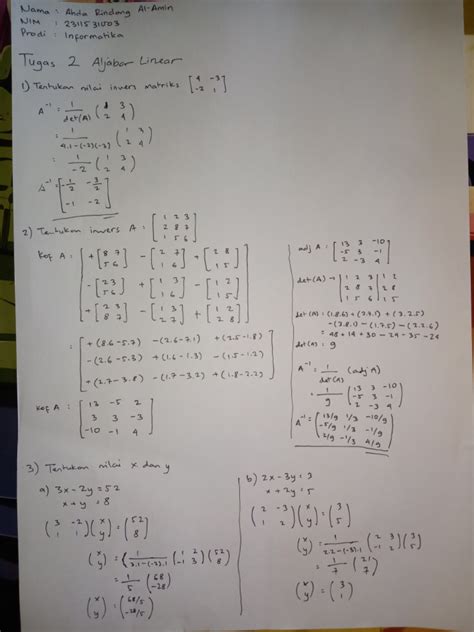 Nama : Ahda Rindang Al-Amin
NIM : 2311531003
Prodi : Informatika
Tugas 2 Aljabar Linear
1) Tentukan nilai invers matriks [4 -3; -2 1]
A⁻¹ = 1/det(A) (1 3; 2 4)
= 1/(4.1-(-2)(-3)) (1 3; 2 4)
= 1/-2 (1 3; 2 4)
A⁻¹ = [-1/2 -3/2; -1 -2]
2) Tentukan invers A : [1 2 3; 2 8 7; 1 5 6]
Kof A : [+[8 7; 5 6] -[2 7; 1 6] +[2 8; 1 5]
-[2 3; 5 6] +[1 3; 1 6] -[1 2; 1 5]
+[2 3; 8 7] -[1 3; 2 7] +[1 2; 2 8]]
= [+(8.6-5.7) -(2.6-7.1) +(2.5-1.8)
-(2.6-5.3) +(1.6-1.3) -(1.5-1.2)
+(2.7-3.8) -(1.7-3.2) +(1.8-2.2)]
Kof A : [13 -5 2
3 3 -3
-10 -1 4]
adj A : [13 3 -10
-5 3 -1
2 -3 4]
det (A) = [1 2 3; 2 8 7; 1 5 6] 1 2; 2 8; 1 5
det (A) = (1.8.6) + (2.7.1) + (3.2.5)
- (3.8.1) - (1.7.5) - (2.2.6)
= 48 + 14 + 30 - 24 - 35 - 24
det (A) : 9
A⁻¹ = 1/det(A) (adj A)
= 1/9 (13 3 -10; -5 3 -1; 2 -3 4)
A⁻¹ = (13/9 1/3 -10/9; -5/9 1/3 -1/9; 2/9 -1/3 4/9)
3) Tentukan nilai x dan y
a) 3x - 2y = 52
x + y = 8
(3 -2; 1 1)(x; y) = (52; 8)
(x; y) = (1/(3.1-(-2).1) (1 2; -1 3)(52; 8)
= 1/5 (68; -28)
(x; y) = (68/5; -28/5)
b) 2x - 3y = 3
x + 2y = 5
(2 -3; 1 2)(x; y) = (3; 5)
(x; y) = 1/(2.2-(-3).1) (2 3; -1 2)(3; 5)
= 1/7 (21; 7)
(x; y) = (3; 1)